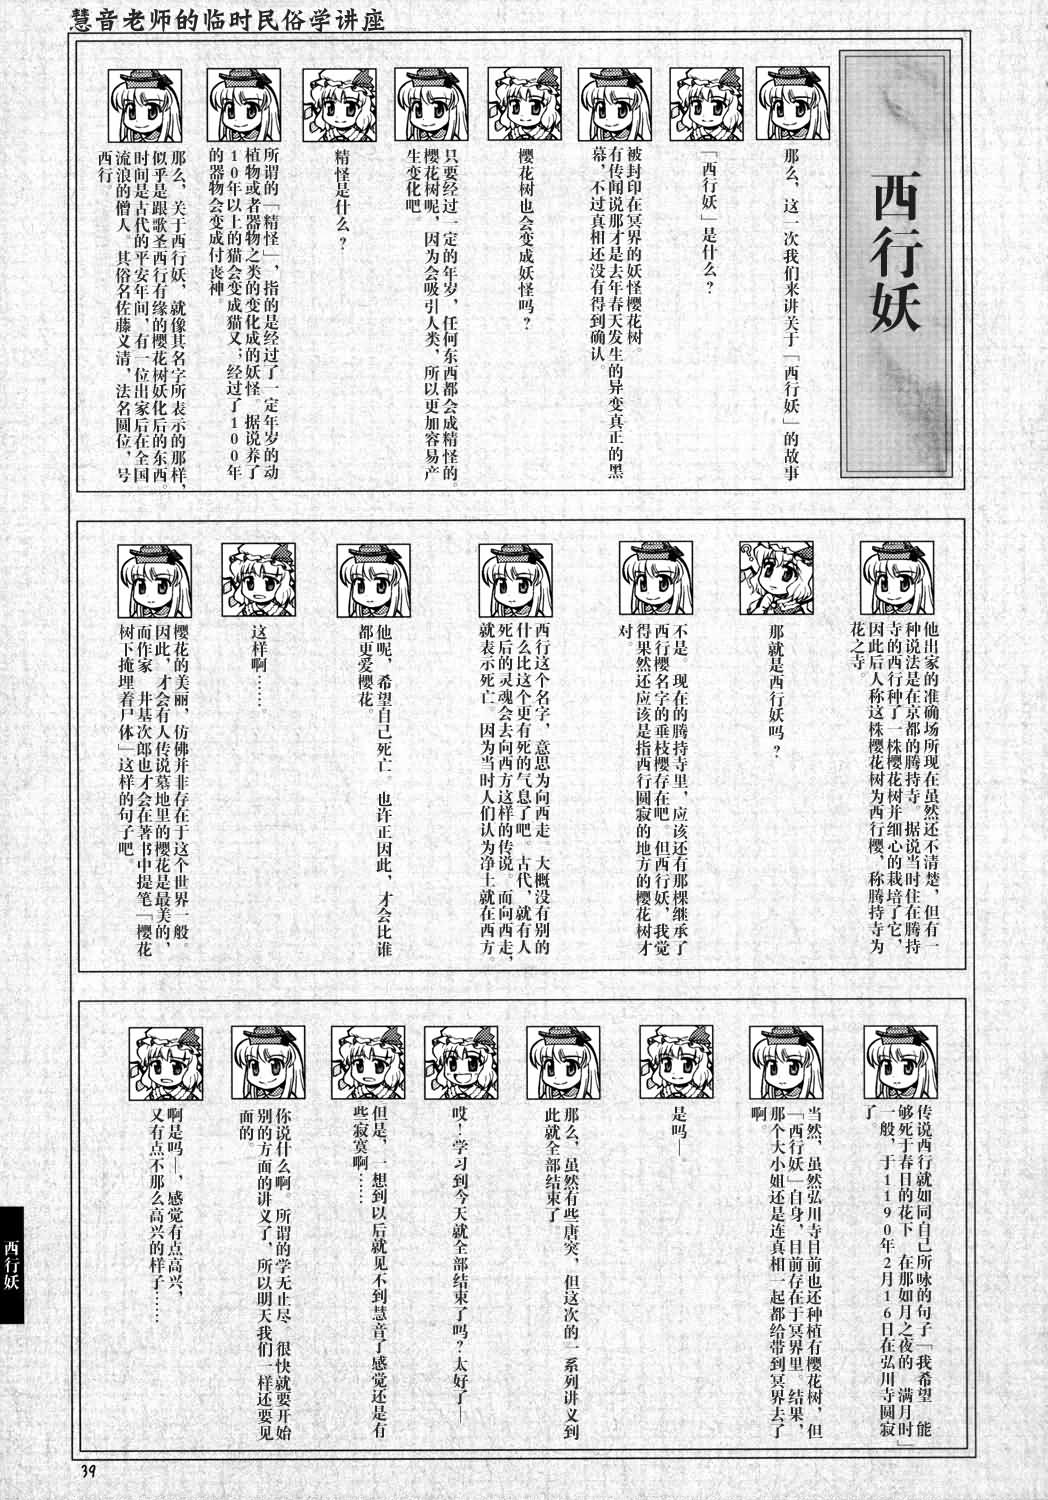 慧音老师的临时民俗学讲座
西行妖
那么，这一次我们来讲关于「西行妖」的故事
「西行妖」是什么？
被封印在冥界的妖怪樱花树。
有传闻说那才是去年春天发生的异变真正的黑
幕，不过真相还没有得到确认。
樱花树也会变成妖怪吗？
只要经过一定的年岁，任何东西都会成精怪的。
樱花树呢，因为会吸引人类，所以更加容易产
生变化吧
精怪是什么？
所谓的「精怪」，指的是经过了一定年岁的动
植物或者器物之类的变化成的妖怪。据说养了
10年以上的猫会变成猫又；经过了100年
的器物会变成付丧神。
那么，关于西行妖，就像其名字所表示的那样，
似乎是跟歌圣西行有缘的樱花树妖化后的东西。
时间是古代的平安年间，有一位出家后在全国
流浪的僧人。其俗名佐藤义清，法名圆位，号
西行
他出家的准确场所现在虽然还不清楚，但有一
种说法是在京都的腾持寺。据说当时住在腾持
寺的西行种了一株樱花树并细心的栽培了它，
因此后人称这株樱花树为西行樱，称腾持寺为
花之寺。
那就是西行妖吗？
不是。现在的腾持寺里，应该还有那棵继承了
西行樱名字的垂枝樱存在吧。但西行妖，我觉
得果然还应该是指西行圆寂的地方的樱花树才
对。
西行这个名字，意思为向西走。大概没有别的
什么比这个更有死的气息了吧。古代，就有人
死后的灵魂会去向西方这样的传说。而向西走，
就表示死亡。因为当时人们认为净土就在西方。
他呢，希望自己死亡。也许正因此，才会比谁
都更爱樱花。
这样啊……。
樱花的美丽，仿佛并非存在于这个世界一般。
因此，才会有人传说墓地里的樱花是最美的，
而作家 井基次郎也才会在著书中提笔「樱花
树下掩埋着尸体」这样的句子吧。
传说西行就如同自己所咏的句子「我希望 能
够死于春日的花下 在那如月之夜的 满月时」
一般，于1190年2月16日在弘川寺圆寂
了
当然，虽然弘川寺目前也还种植有樱花树，但
「西行妖」自身，目前存在于冥界里。结果，
那个大小姐还是连真相一起都给带到冥界去了
啊。
是吗—。
那么，虽然有些唐突，但这次的一系列讲义到
此就全部结束了。
哎！学习到今天就全部结束了吗？太好了—
但是，一想到以后就见不到慧音了感觉还是有
些寂寞啊……
你说什么啊。所谓的学无止尽 很快就要开始
别的方面的讲义了，所以明天我们一样还要见
面的。
啊是吗—，感觉有点高兴，
又有点不那么高兴的样子……
西行妖
39